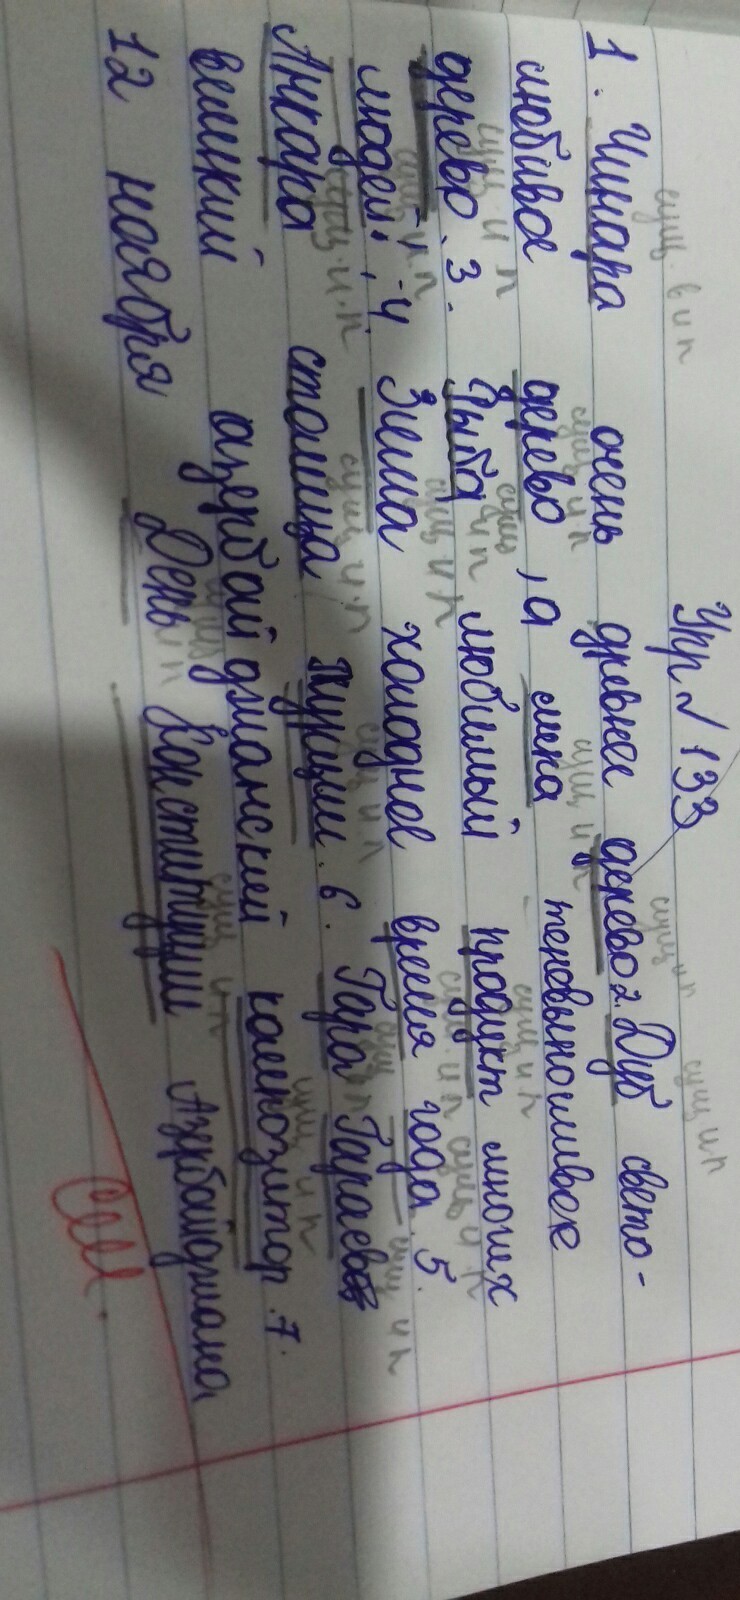 Упр № 133
сущ. в и п сущ и п сущ и п
1. Чинара очень древнее дерево 2. Дуб свето-
сущ и п сущ и п
любивое дерево, а липа теневыносливое
сущ и п сущ и п сущ и п
дерево. 3. Рыба любимый продукт многих
сущ и п сущ и п сущ. и п сущ и п
людей. 4 Зима холодное время года. 5.
сущ. и. п сущ и п сущ и п сущ и п сущ и п
Анкара столица Турции. 6. Гара Гараев
сущ и п
великий азербайджанский композитор. 7.
сущ и п сущ и п
12 наября День Конституции Азербайджана